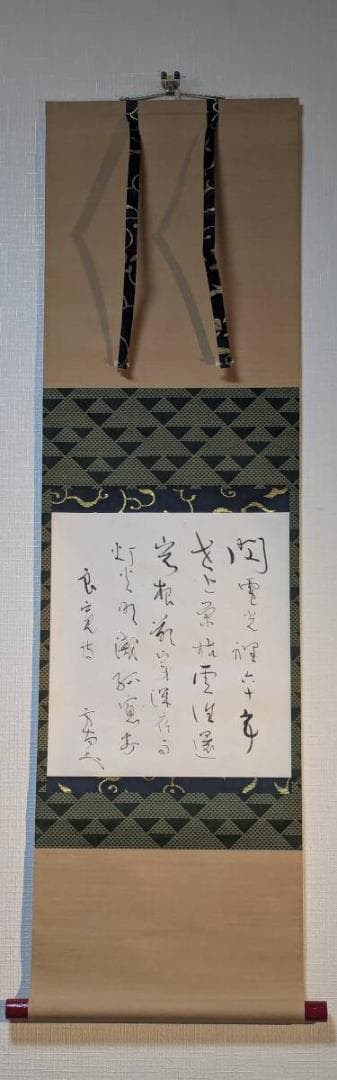 閃電光裡六十年
世上栄枯雲往還
岩根欲穿深夜雨
灯火明滅孤窓前
良寛詩